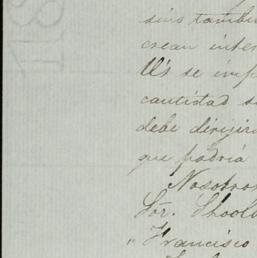 sino tambie
crean inter
Uds se imp
cantidad s
debe dirigir
que podria
Nosotros
Sor. Shool
"Francisco